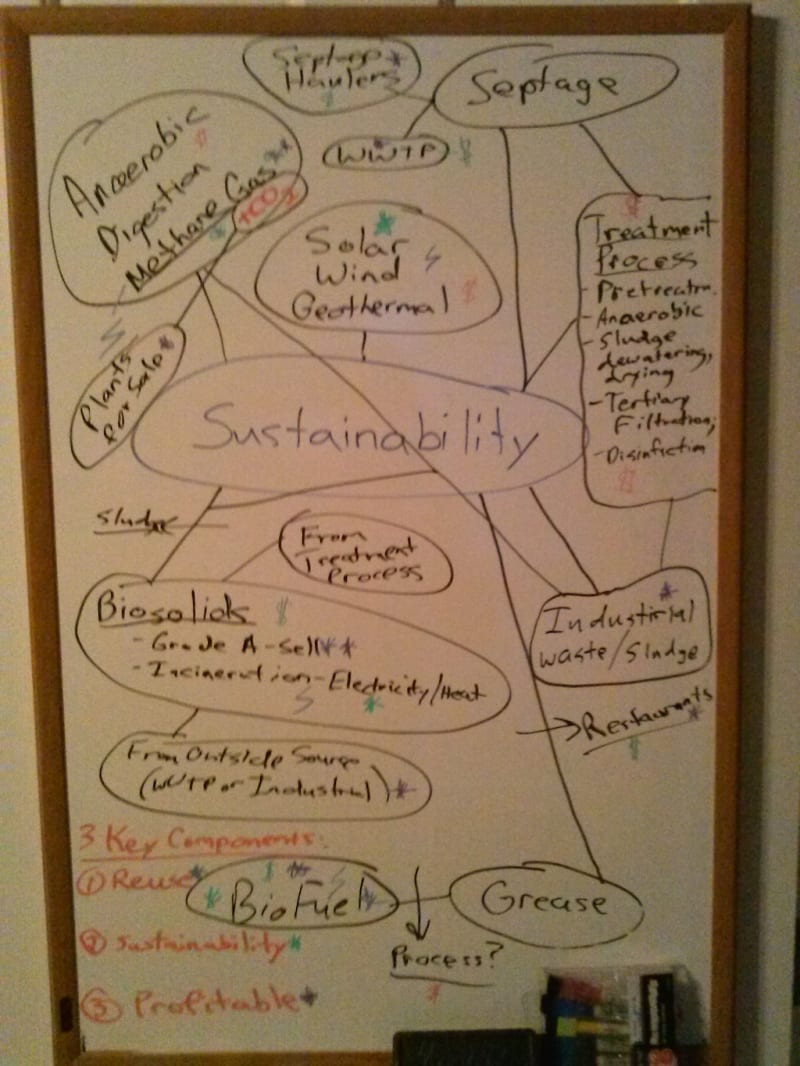 Septage
Haulers
Septage
WWTP
Anaerobic
Digestion
Methane Gas
+CO2
Solar
Wind
Geothermal
Treatment
Process
- Pretreatm.
- Anaerobic
- Sludge
dewatering,
drying
- Tertiary
Filtration,
- Disinfiction
Plants
for Sale
Sustainability
Sludge
From
Treatment
Process
Biosolids
- Grade A - Sell
- Incineration - Electricity/Heat
Industirial
waste/Sludge
Restaurants
From Outside Source
(WWTP or Industrial)
3 Key Components:
① Reuse
② Sustainability
③ Profitable
BioFuel
Grease
Process?